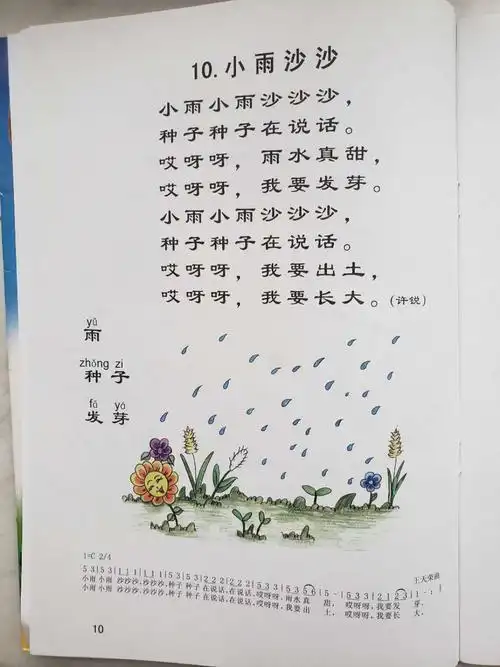 10.小雨沙沙
小雨小雨沙沙沙，
种子种子在说话。
哎呀呀，雨水真甜，
哎呀呀，我要发芽。
小雨小雨沙沙沙，
种子种子在说话。
哎呀呀，我要出土，
哎呀呀，我要长大。（许锐）
yǔ
雨
zhǒng zi
种子
fā yá
发芽
1=C 2/4
王天荣曲
小雨小雨 沙沙沙，沙沙沙，种子种子 在说话，在说话，哎呀呀，雨水真 甜，哎呀呀，我要发 芽。
小雨小雨 沙沙沙，沙沙沙，种子种子 在说话，在说话，哎呀呀，我要出 土，哎呀呀，我要长 大。
10